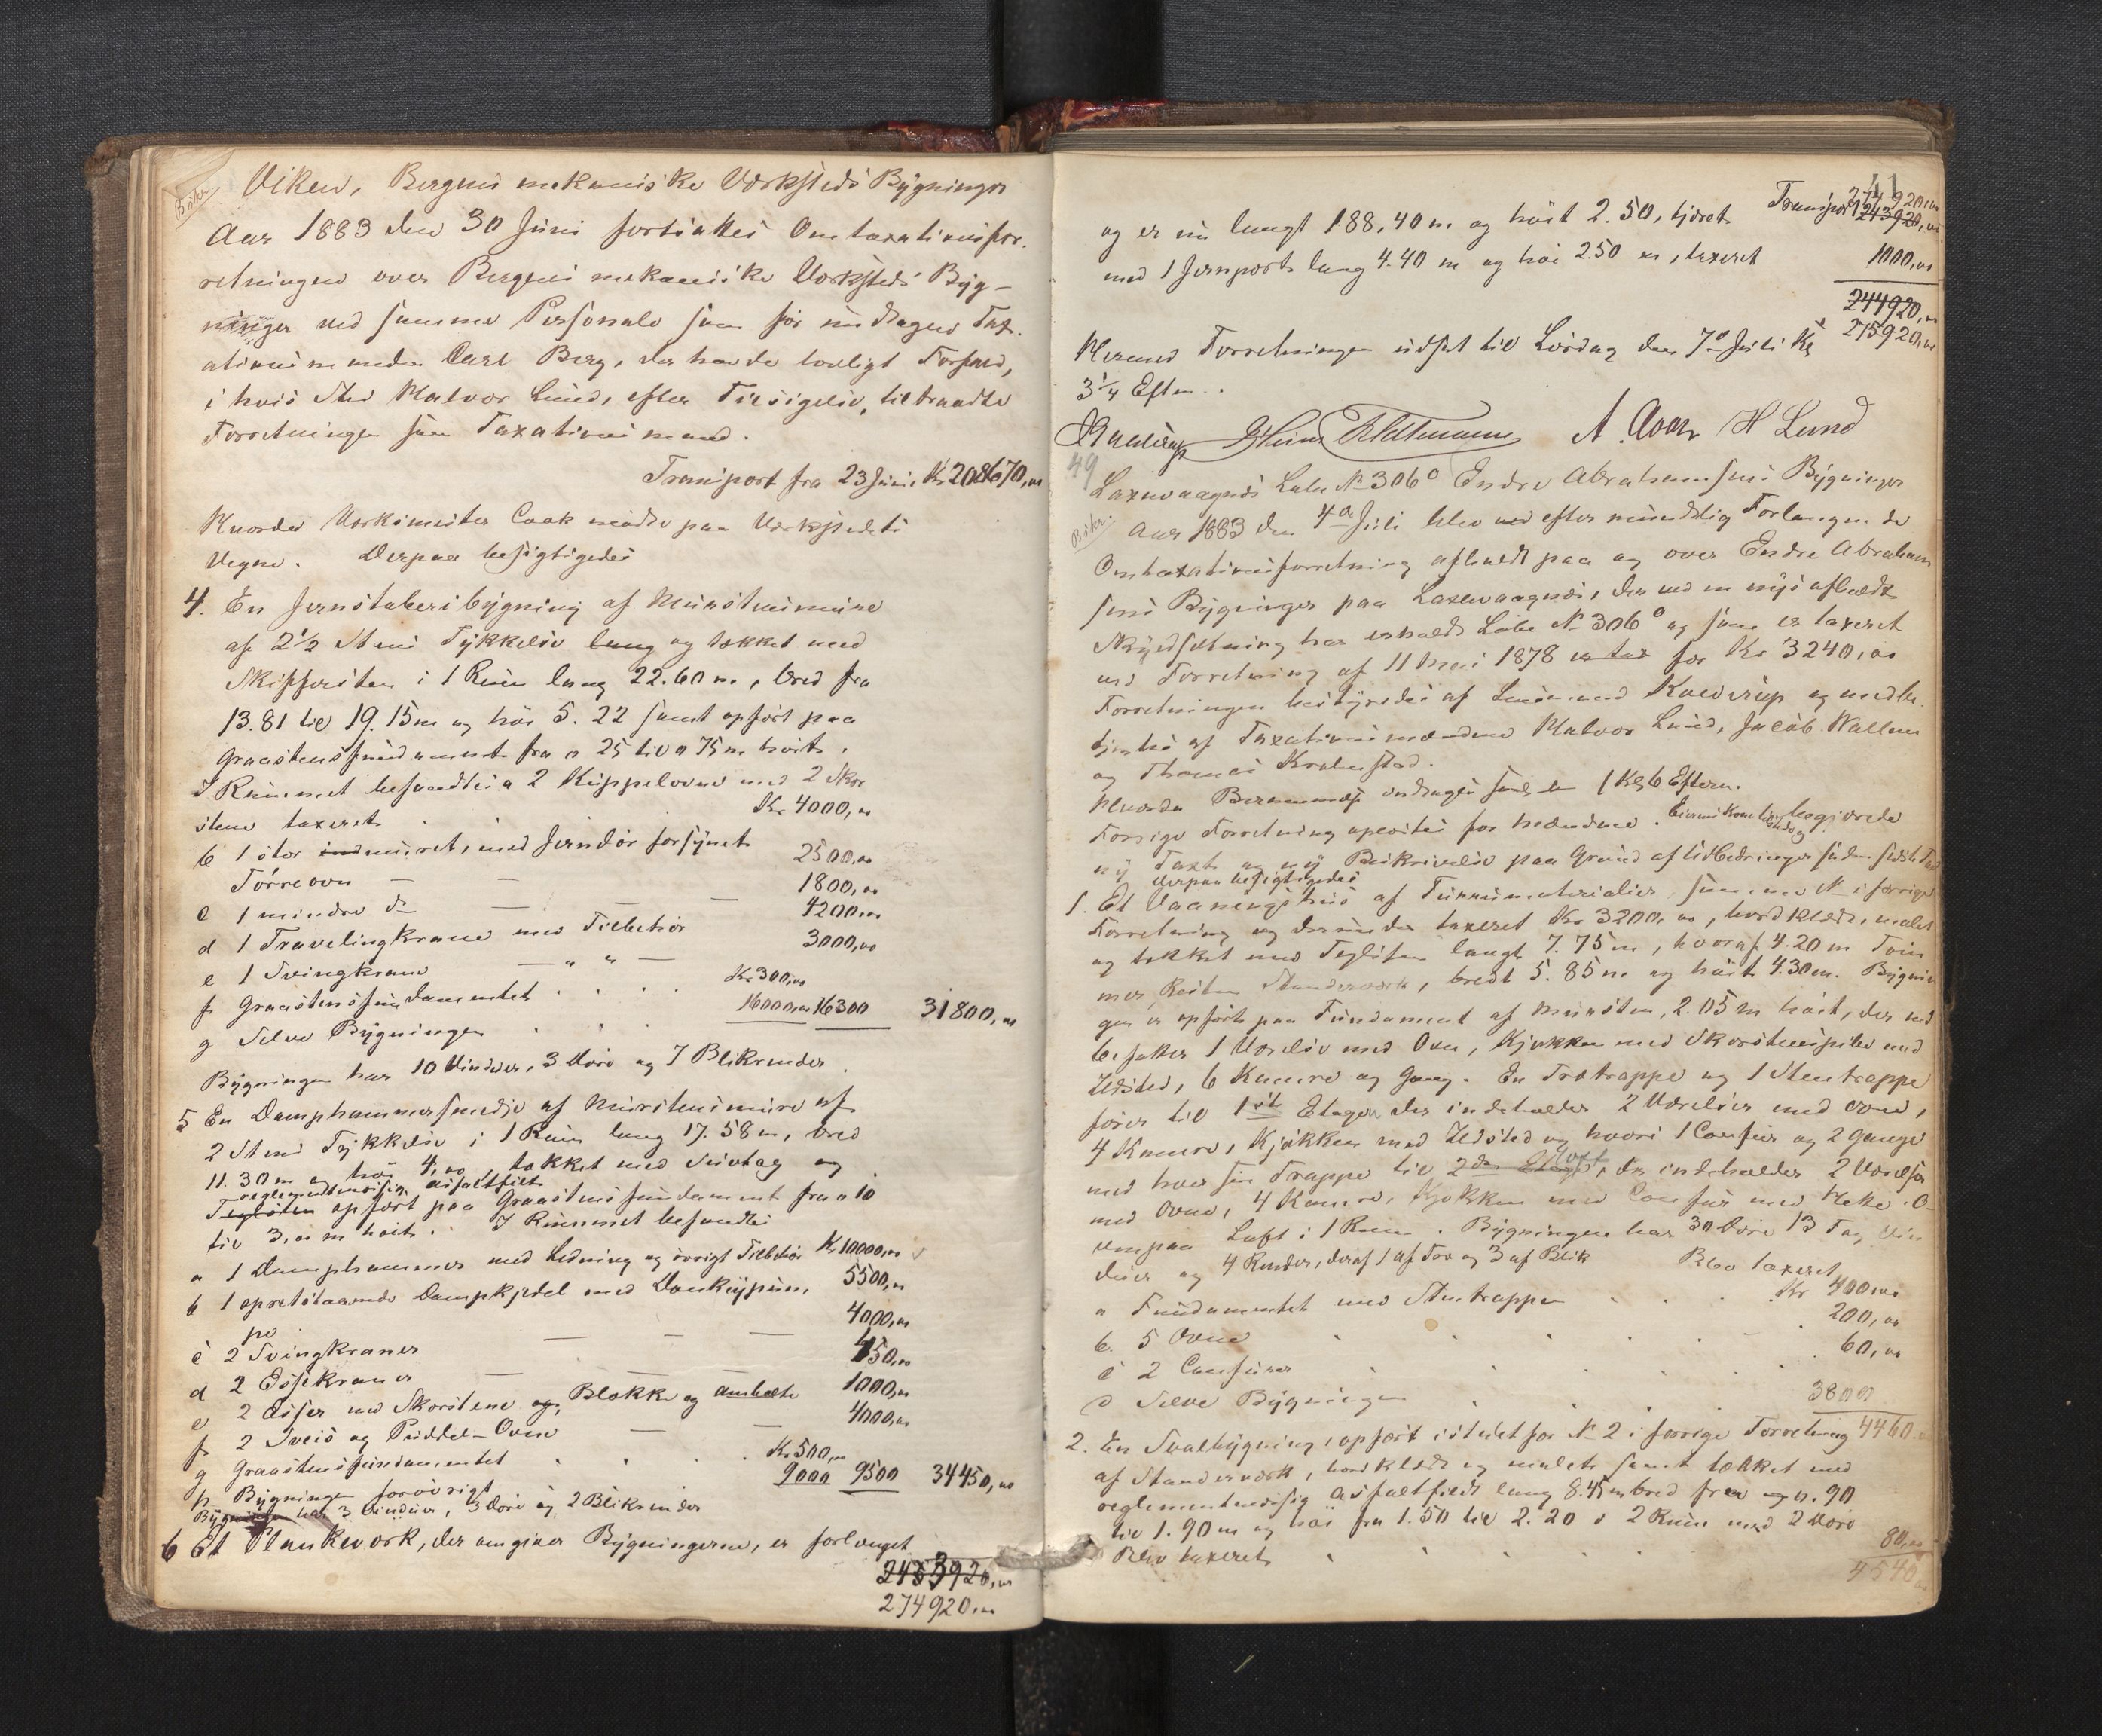 Viken, Bergens mekaniske Værksteds Bygninger
Beskr.
Aar 1883 den 30 Juni fortsattes Omtaxationsfor-
retningen over Bergens mekaniske Værksteds Byg-
ninger ved samme Personale som før undtagen Tax-
ationsmanden Carl Berg, der havde lovligt Forfald,
i hvis Sted Halvor Lund, efter Tilsigelse, tiltraadte
Forretningen som Taxationsmand.
Transport fra 23 Juni Kr 208670,00
Hvorda Værksmester Cook mødte paa Værkstedets
Vegne. Derpaa besigtigedes
4. En Jernstøberibygning af Murstensmure
af 2½ Stens Tykkelse lang og tækket med
Skifersten i 1 Rum lang 22.60 m, bred fra
13.81 til 19.15 m og høi 5.22 samt opført paa
Graastensfundament fra 0.25 til 0.75 m høit.
I Rummet befandtes a 2 Kuppelovne med 2 Skor
stene taxeret Kr 4000,00
b 1 stor indmuret, med Jerndør forsynet
Tørreovn — — 2500,00
c 1 mindre do — — — 1800,00
d 1 Travelingkrane med Tilbehør 4200,00
e 1 Svingkrane — „ „ — 3000,00
f Graastensfundamentet Kr 300,00
g Selve Bygningen 16000,00 16300 31800,00
Bygningen har 10 Vinduer, 3 Døre og 7 Blikrender
5 En Damphammersmedje af Murstensmure af
2 Stens Tykkelse i 1 Rum lang 17.58 m, bred
11.30 m og høi 4,00 tækket med Suetag og
reglementsmæssig asfaltfilt
Teglsten opført paa Graastensfundament fra 0.10
til 3,00 m høit. I Rummet befandtes
a 1 Damphammer med Ledning og øvrigt Tilbehør Kr 10000,00
b 1 opretstaaende Dampkjedel med Donkeypum, 5500,00
pe
c 2 Svingkraner — — — 4000,00
d 2 Essekraner — — — 450,00
e 2 Esser med Skorstene og, Blokke og Ambolte 1000,00
f 2 Sveis og Puddel-Ovne — — 4000,00
g Graastensfundamentet Kr 500,00
h Bygningen forøvrigt 9000 9500 34450,00
Bygningen har 3 Vinduer, 3 Døre og 2 Blikrender
6 Et Plankeværk, der omgiver Bygningerne, er forlænget
243920,00
274920,00
41
Transport 274920,00
243920,00
og er nu langt 188,40 m og høit 2.50, tjæret
med 1 Jernport lang 4.40 m og høi 2.50 m, taxeret 1000,00
244920,00
275920,00
Hermed Forretningen udsat til Lørdag den 7de Juli Kl
3¼ Efterm.
A. Cook H Lund
49
Laxevaagnæs Løbe No 306o Endre Abrahamsens Bygninger
Beskr.
Aar 1883 den 4de Juli blev ved efter mundtlig Forlangende
Omtaxationsforretning afholdt paa og over Endre Abraham
sens Bygninger paa Laxevaagnæs, der ved en nys afholdt
Skyldsætning har erholdt Løbe No 306o og som er taxeret
ved Forretning af 11 Mai 1878 er tax for Kr 3240,00
Forretningen bestyredes af Lensmand Knuderup og medbe-
tjentes af Taxationsmændene Halvor Lund, Jacob Wallem
og Thomas Krohnstad.
Hvorda Berammelse undtages Kl 6 Efterm.
Forrige Forretning oplæstes for Mændene. Eieren Kom tilstede og begjærede
ny Taxt og ny Beskrivelse paa Grund af Udbedringer siden sidste Tax
Derpaa besigtigedes
1. Et Vaaningshus af Tømmermaterialier samme No i forrige
Forretning og derunder taxeret Kr 3200,00, bordklædt, malet
og tækket med Teglsten langt 7.75 m, hvoraf 4.20 m Tøm
mer, Resten Stenderværk, bredt 5.85 m og høit 4.30 m. Bygnin
gen er opført paa Fundament af Mursten, 2.05 m høit, der ind
befatter 1 Værelse med Ovn, Kjøkken med Skorstenspibe med
Ildsted, 6 Kamre og Gang. En Trætrappe og 1 Stentrappe
fører til 1ste Etage, der indeholder 2 Værelser med Ovne,
4 Kamre, Kjøkken med Ildsted og hvori 1 Comfur og 2 Gange
med hver sin Trappe til 2den Etage Loft, der indeholder 2 Værelser
med Ovne, 4 Kamre, Kjøkken med Comfur med Hette. O-
venpaa Loft i 1 Rum. Bygningen har 30 Døre 13 Fag Vin
duer og 4 Render, deraf 1 af Træ og 3 af Blik Blev taxeret
a Fundamentet med Stentrappen Kr 400,00
b. 5 Ovne 200,00
c 2 Comfurer 60,00
d Selve Bygningen 3800
4460,00
2. En Svalbygning, opført istedetfor No 2 i forrige Forretning
af Stenderværk, bordklædt og malet samt tækket med
reglementmæssig asfaltfilt lang 8.45 m bred fra 0.90
til 1.90 m og høi fra 1.50 til 2.20 i 2 Rum med 2 Døre
Blev taxeret 80,00
4540,00